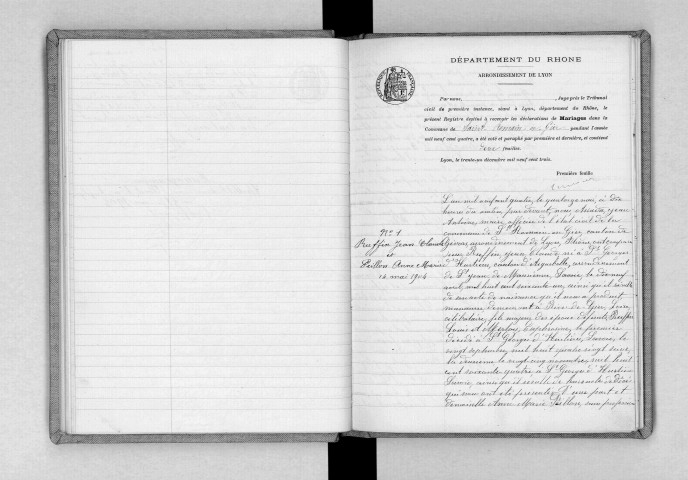 DÉPARTEMENT DU RHONE
ARRONDISSEMENT DE LYON
RÉPUBLIQUE FRANÇAISE
Par nous, Juge près le Tribunal
civil de première instance, séant à Lyon, département du Rhône, le
présent Registre destiné à recevoir les déclarations de Mariages dans la
Commune de Saint Romain en Gier pendant l'année
mil neuf cent quatre, a été coté et paraphé par première et dernière, et contient
feuilles.
Lyon, le trente-un décembre mil neuf cent trois.
Première feuille
N° 1
Ruffin Jean Claude
et
Paillon Anne Marie
14 mai 1904
L'an mil neuf cent quatre, le quatorze mai, à dix
heures du matin, par devant nous, Jean
Antoine, maire officier de l'état civil de la
commune de St Romain en Gier, canton de
Givors, arrondissement de Lyon, Rhône, ont comparu
sieur Ruffin, Jean Claude, né à St Georges
d'Hurtières, canton d'Aiguebelle, arrondissement
de St Jean de Maurienne, Savoie, le dix neuf
avril mil huit cent soixante un, ainsi qu'il résulte
de son acte de naissance qu'il nous a produit,
manœuvre demeurant à Rive de Gier, Loire,
célibataire, fils majeur des époux défunts Ruffin
Louis et Euphrosine, le premier
décédé à St Georges d'Hurtières, Savoie, le
vingt septembre mil huit cent quatre vingt
la deuxième le vingt cinq novembre mil huit
cent soixante quatre à St Georges d'Hurtières
Savoie, ainsi qu'il résulte de leurs actes de décès
qui nous ont été présentés, d'une part et
Demoiselle Anne Marie Paillon, sans profession